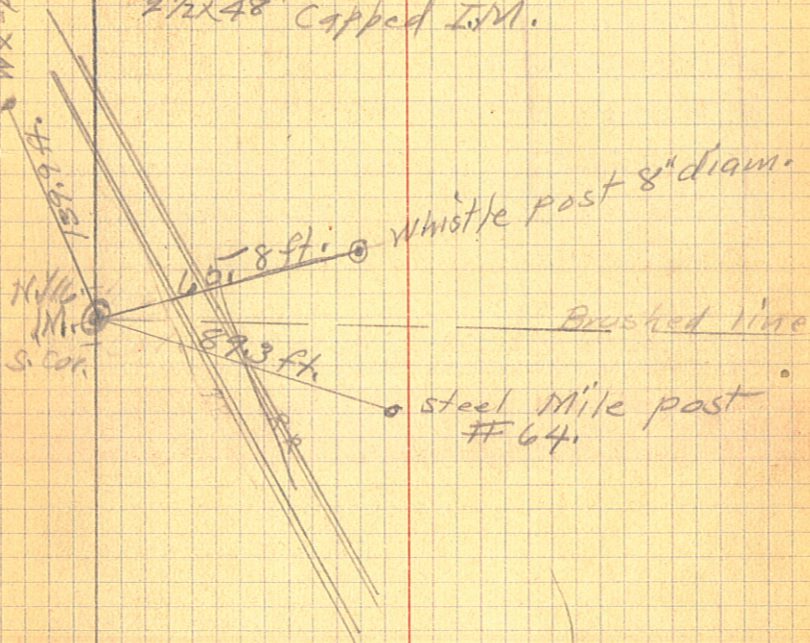 2½x48" Capped I.M.
139.9 ft.
Whistle post 8" diam.
65.8 ft.
N.1/16.
I.M.
S. Cor.
Brushed line
89.3 ft.
steel Mile post
# 64.
R R